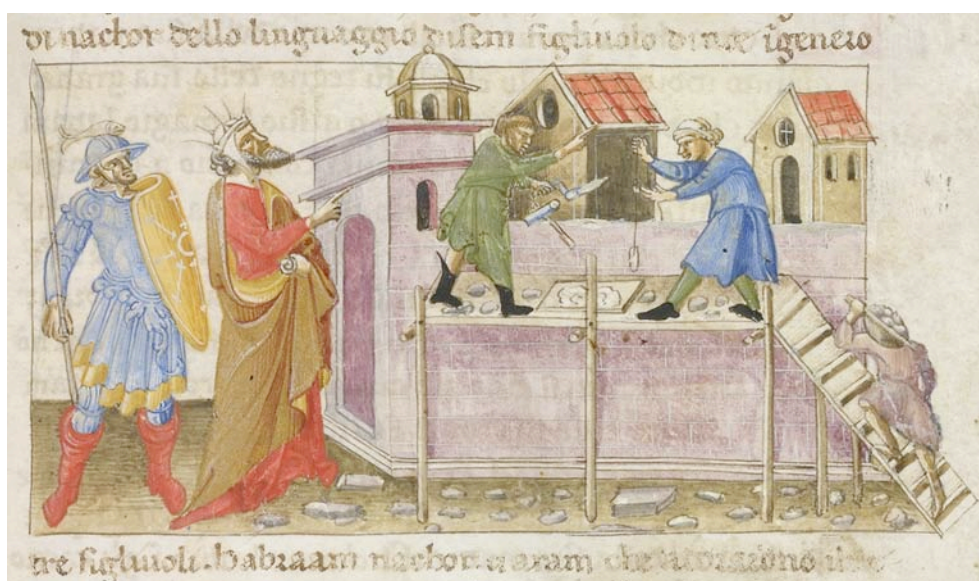 di nachor dello linguaggio di sem figliuolo di noe ĩgenero
tre figliuoli. habraam nachor aram che